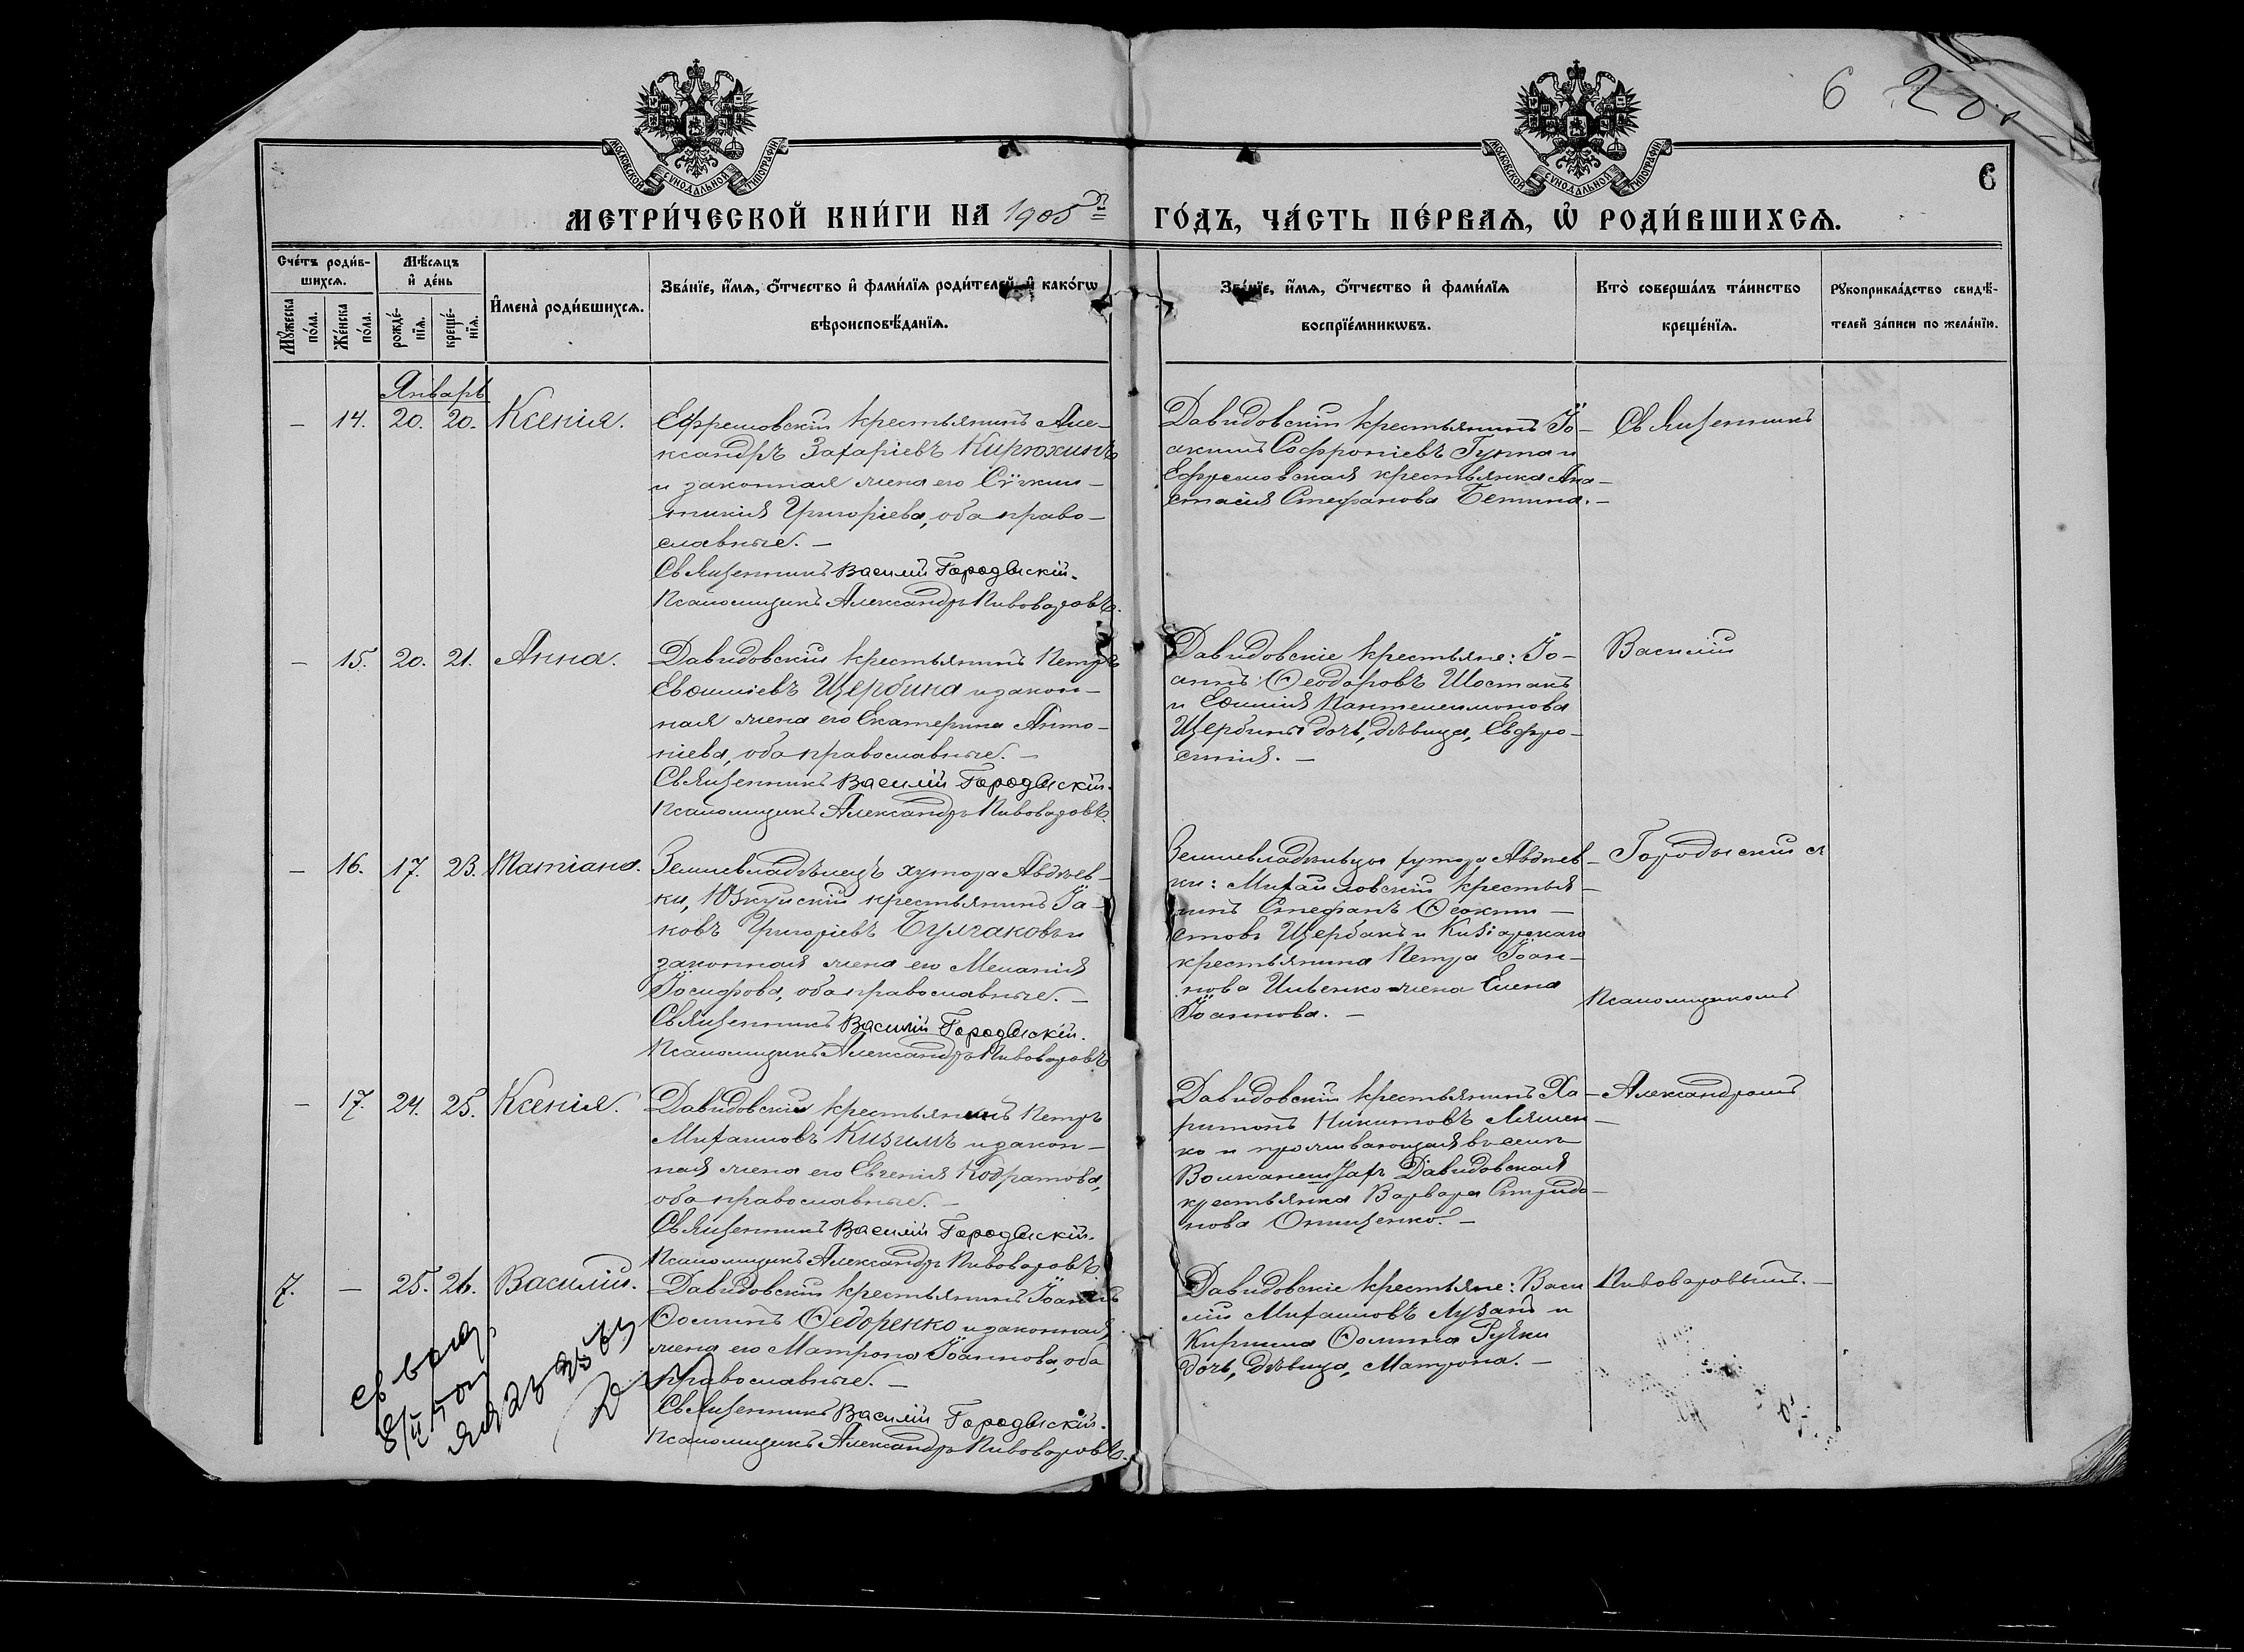 6
МОСКОВСКОЙ СѴНОДАЛЬНОЙ ТИПОГРАФІИ
МОСКОВСКОЙ СѴНОДАЛЬНОЙ ТИПОГРАФІИ
6
МЕТРИ́ЧЕСКОЙ КНИ́ГИ НА 1905 ГО́ДЪ, ЧА́СТЬ ПЕ́РВАѦ, Ѡ҆ РОДИ́ВШИХСѦ.
Сче́тъ роди́в-
шихсѧ.
Мꙋ́жеска по́ла.
Же́нска по́ла.
Мѣ́сѧцъ
и҆ де́нь
рожде́-
нїѧ.
креще́-
нїѧ.
И҆мена̀ роди́вшихсѧ.
Зва́нїе, и҆́мѧ, ѻ҆́тчество и҆ фами́лїѧ роди́телей, и҆ како́гѡ
вѣроисповѣ́данїѧ.
Зва́нїе, и҆́мѧ, ѻ҆́тчество и҆ фами́лїѧ
воспрїе́мникѡвъ.
Кто̀ соверша́лъ та́инство
креще́нїѧ.
Рꙋкоприкла́дство свидѣ́-
телей за́писи по жела́нїю.
Январь
– 14. 20. 20. Ксенія.
Ефремовскій крестьянинъ Але-
ксандръ Захаріевъ Кирюхинъ
и законная жена его Сѵнкли-
тикія Григоріева, оба право-
славные. –
Священникъ Василій Городыскій.
Псаломщикъ Александръ Пивоваровъ.
Давидовскій крестьянинъ Іо-
акимъ Софроніевъ Гукта и
Ефремовская крестьянка Ана-
стасія Стефанова Бетина. –
Священникъ
– 15. 20. 21. Анна.
Давидовскій крестьянинъ Петръ
Евѳиміевъ Щербина и закон-
ная жена его Екатерина Анто-
ніева, оба православные. –
Священникъ Василій Городыскій.
Псаломщикъ Александръ Пивоваровъ.
Давидовскіе крестьяне: Іо-
аннъ Ѳеодоровъ Шостакъ
и Еѳимія Пантелеимонова
Щербины дочь, дѣвица, Евфро-
синія. –
Василій
– 16. 17. 23. Татіана.
Землевладѣлецъ хутора Авдѣев-
ки, Юзкуйскій крестьянинъ Іа-
ковъ Григоріевъ Булгаковъ и
законная жена его Меланія
Іосифова, оба православные. –
Священникъ Василій Городыскій.
Псаломщикъ Александръ Пивоваровъ
Землевладѣльцы хутора Авдѣев-
ки: Михайловскій крестья-
нинъ Стефанъ Ѳеокти-
стовъ Щербакъ и Кизіярскаго
крестьянина Петра Іоан-
нова Ивленко жена Елена
Іоаннова. –
Городыскій съ
Псаломщикомъ
– 17. 24. 25. Ксенія.
Давидовскій крестьянинъ Петръ
Михаиловъ Кизимъ и закон-
ная жена его Евгенія Кодратова,
оба православные. –
Священникъ Василій Городыскій.
Псаломщикъ Александръ Пивоваровъ.
Давидовскій крестьянинъ Ха-
ритонъ Никитовъ Ляшен-
ко и проживающая въ селѣ
Волканешахъ Давидовская
крестьянка Варвара Спиридо-
нова Онищенко. –
Александромъ
7. – 25. 26. Василій.
Давидовскій крестьянинъ Іоаннъ
Ѳоминъ Ѳедоренко и законная
жена его Матрона Іоаннова, оба
православные. –
Священникъ Василій Городыскій.
Псаломщикъ Александръ Пивоваровъ.
Давидовскіе крестьяне: Васи
лій Михаиловъ Лузанъ и
Кирилла Ѳомина Рузки
дочь, дѣвица, Матрона. –
Пивоваровымъ. –